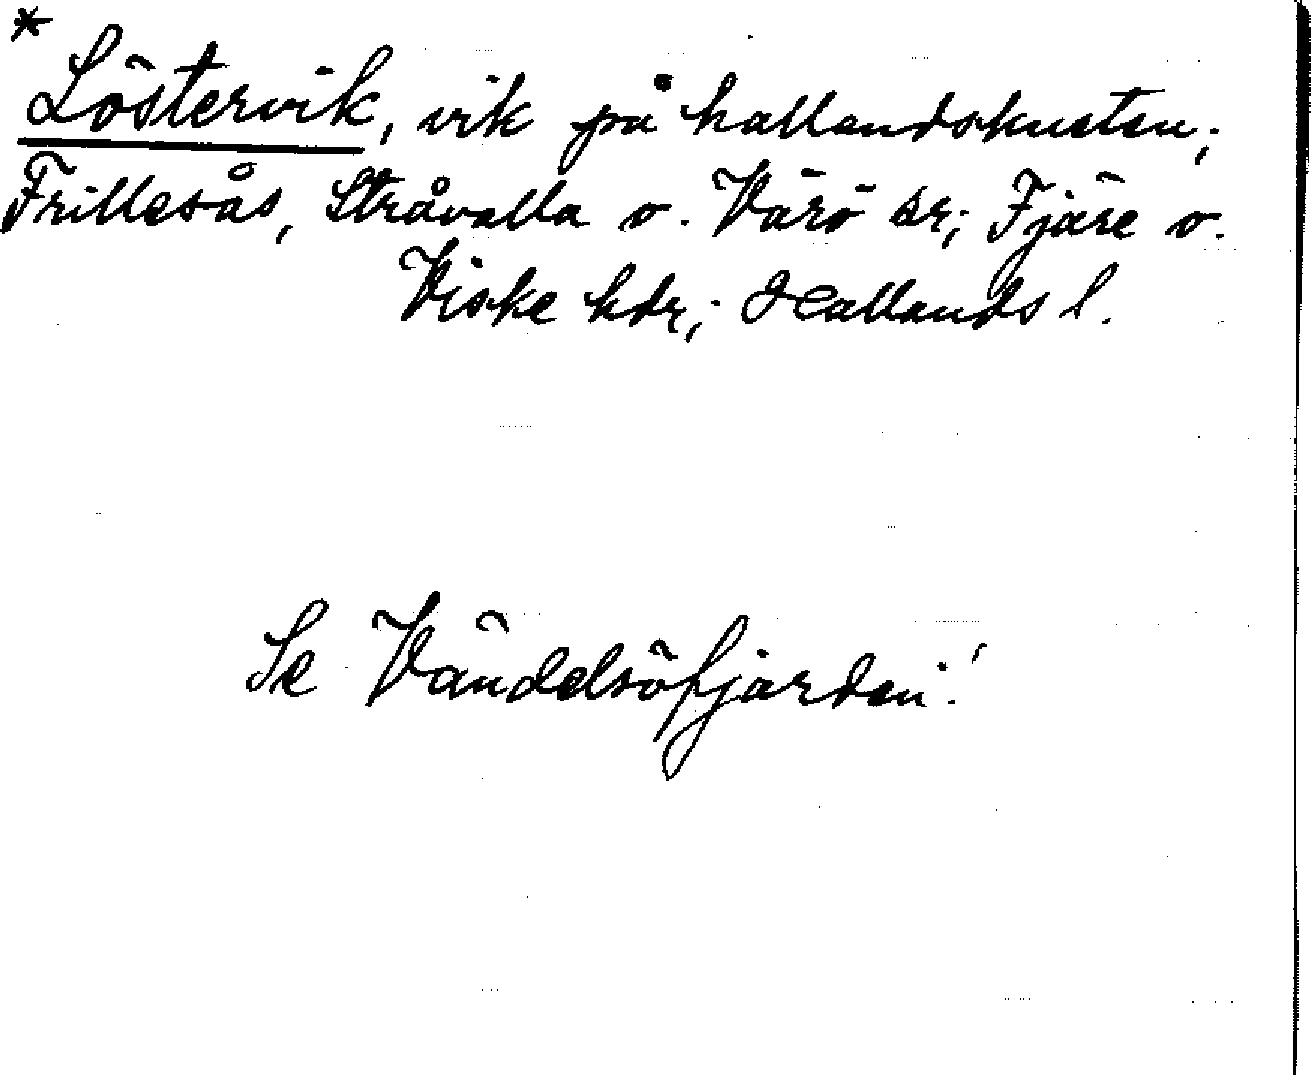 *
Löstervik, vik på hallandskusten;
Frillesås, Stråvalla o. Värö sr; Fjäre o.
Viske hdr; Hallands l.
Se Vändelsöfjärden!